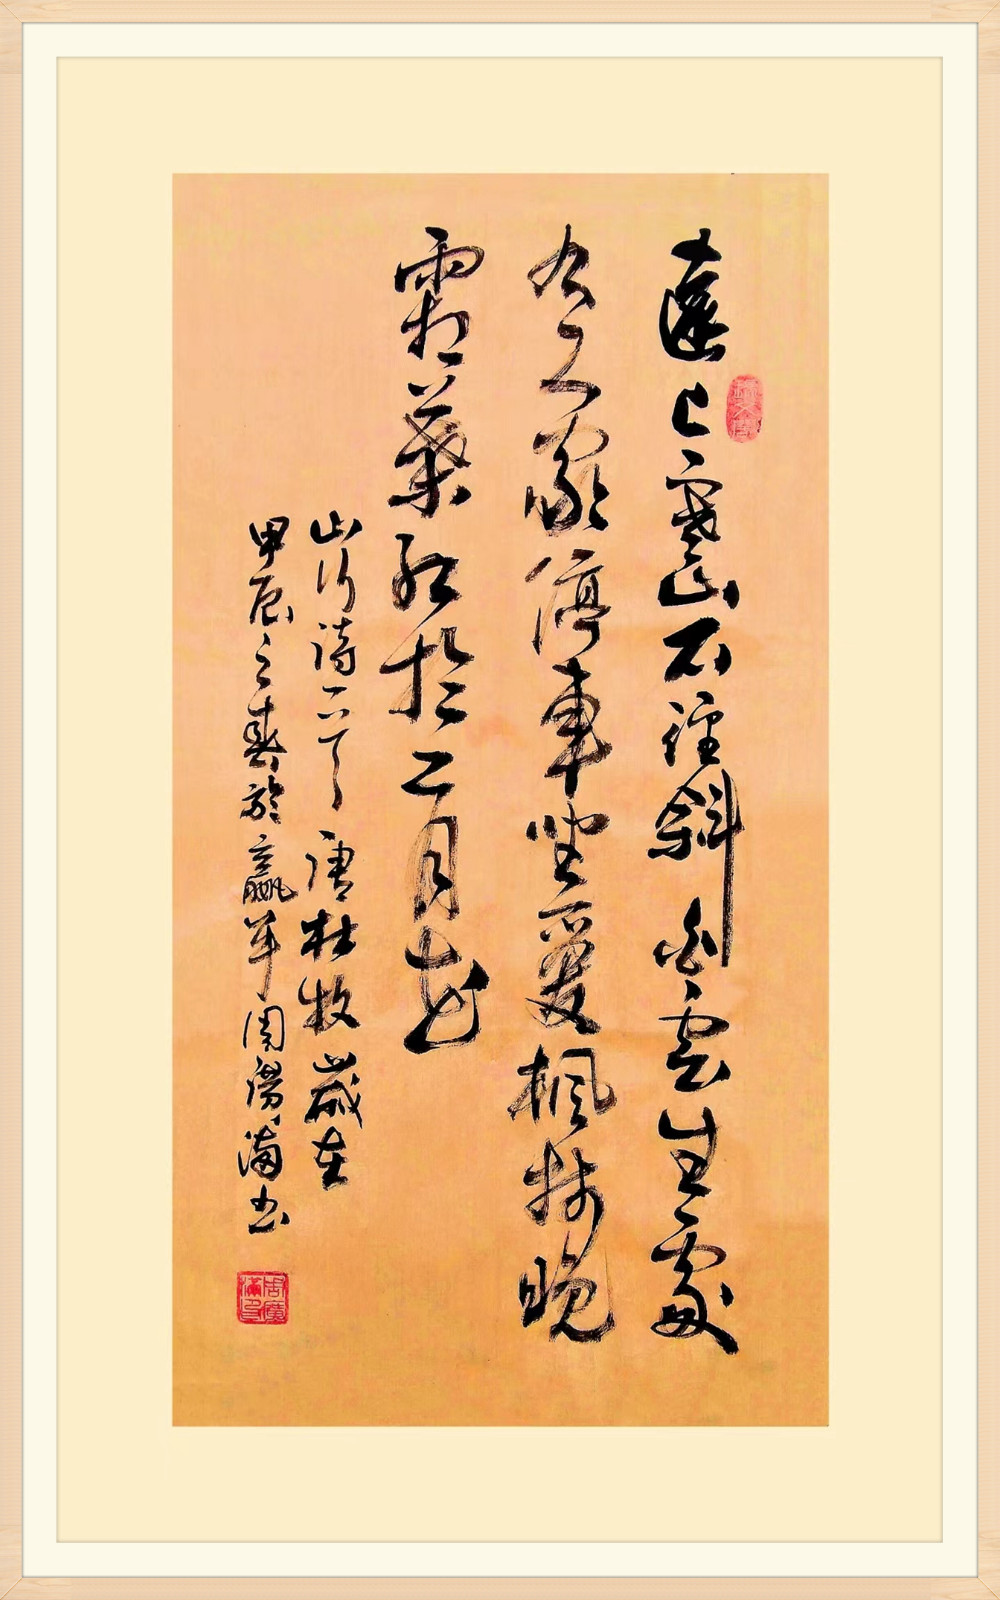 遠上寒山石徑斜白雲生處
有人家停車坐愛楓林晚
霜葉紅於二月花
山行詩一首唐杜牧歲在
甲辰之春於嬴牟周滿书